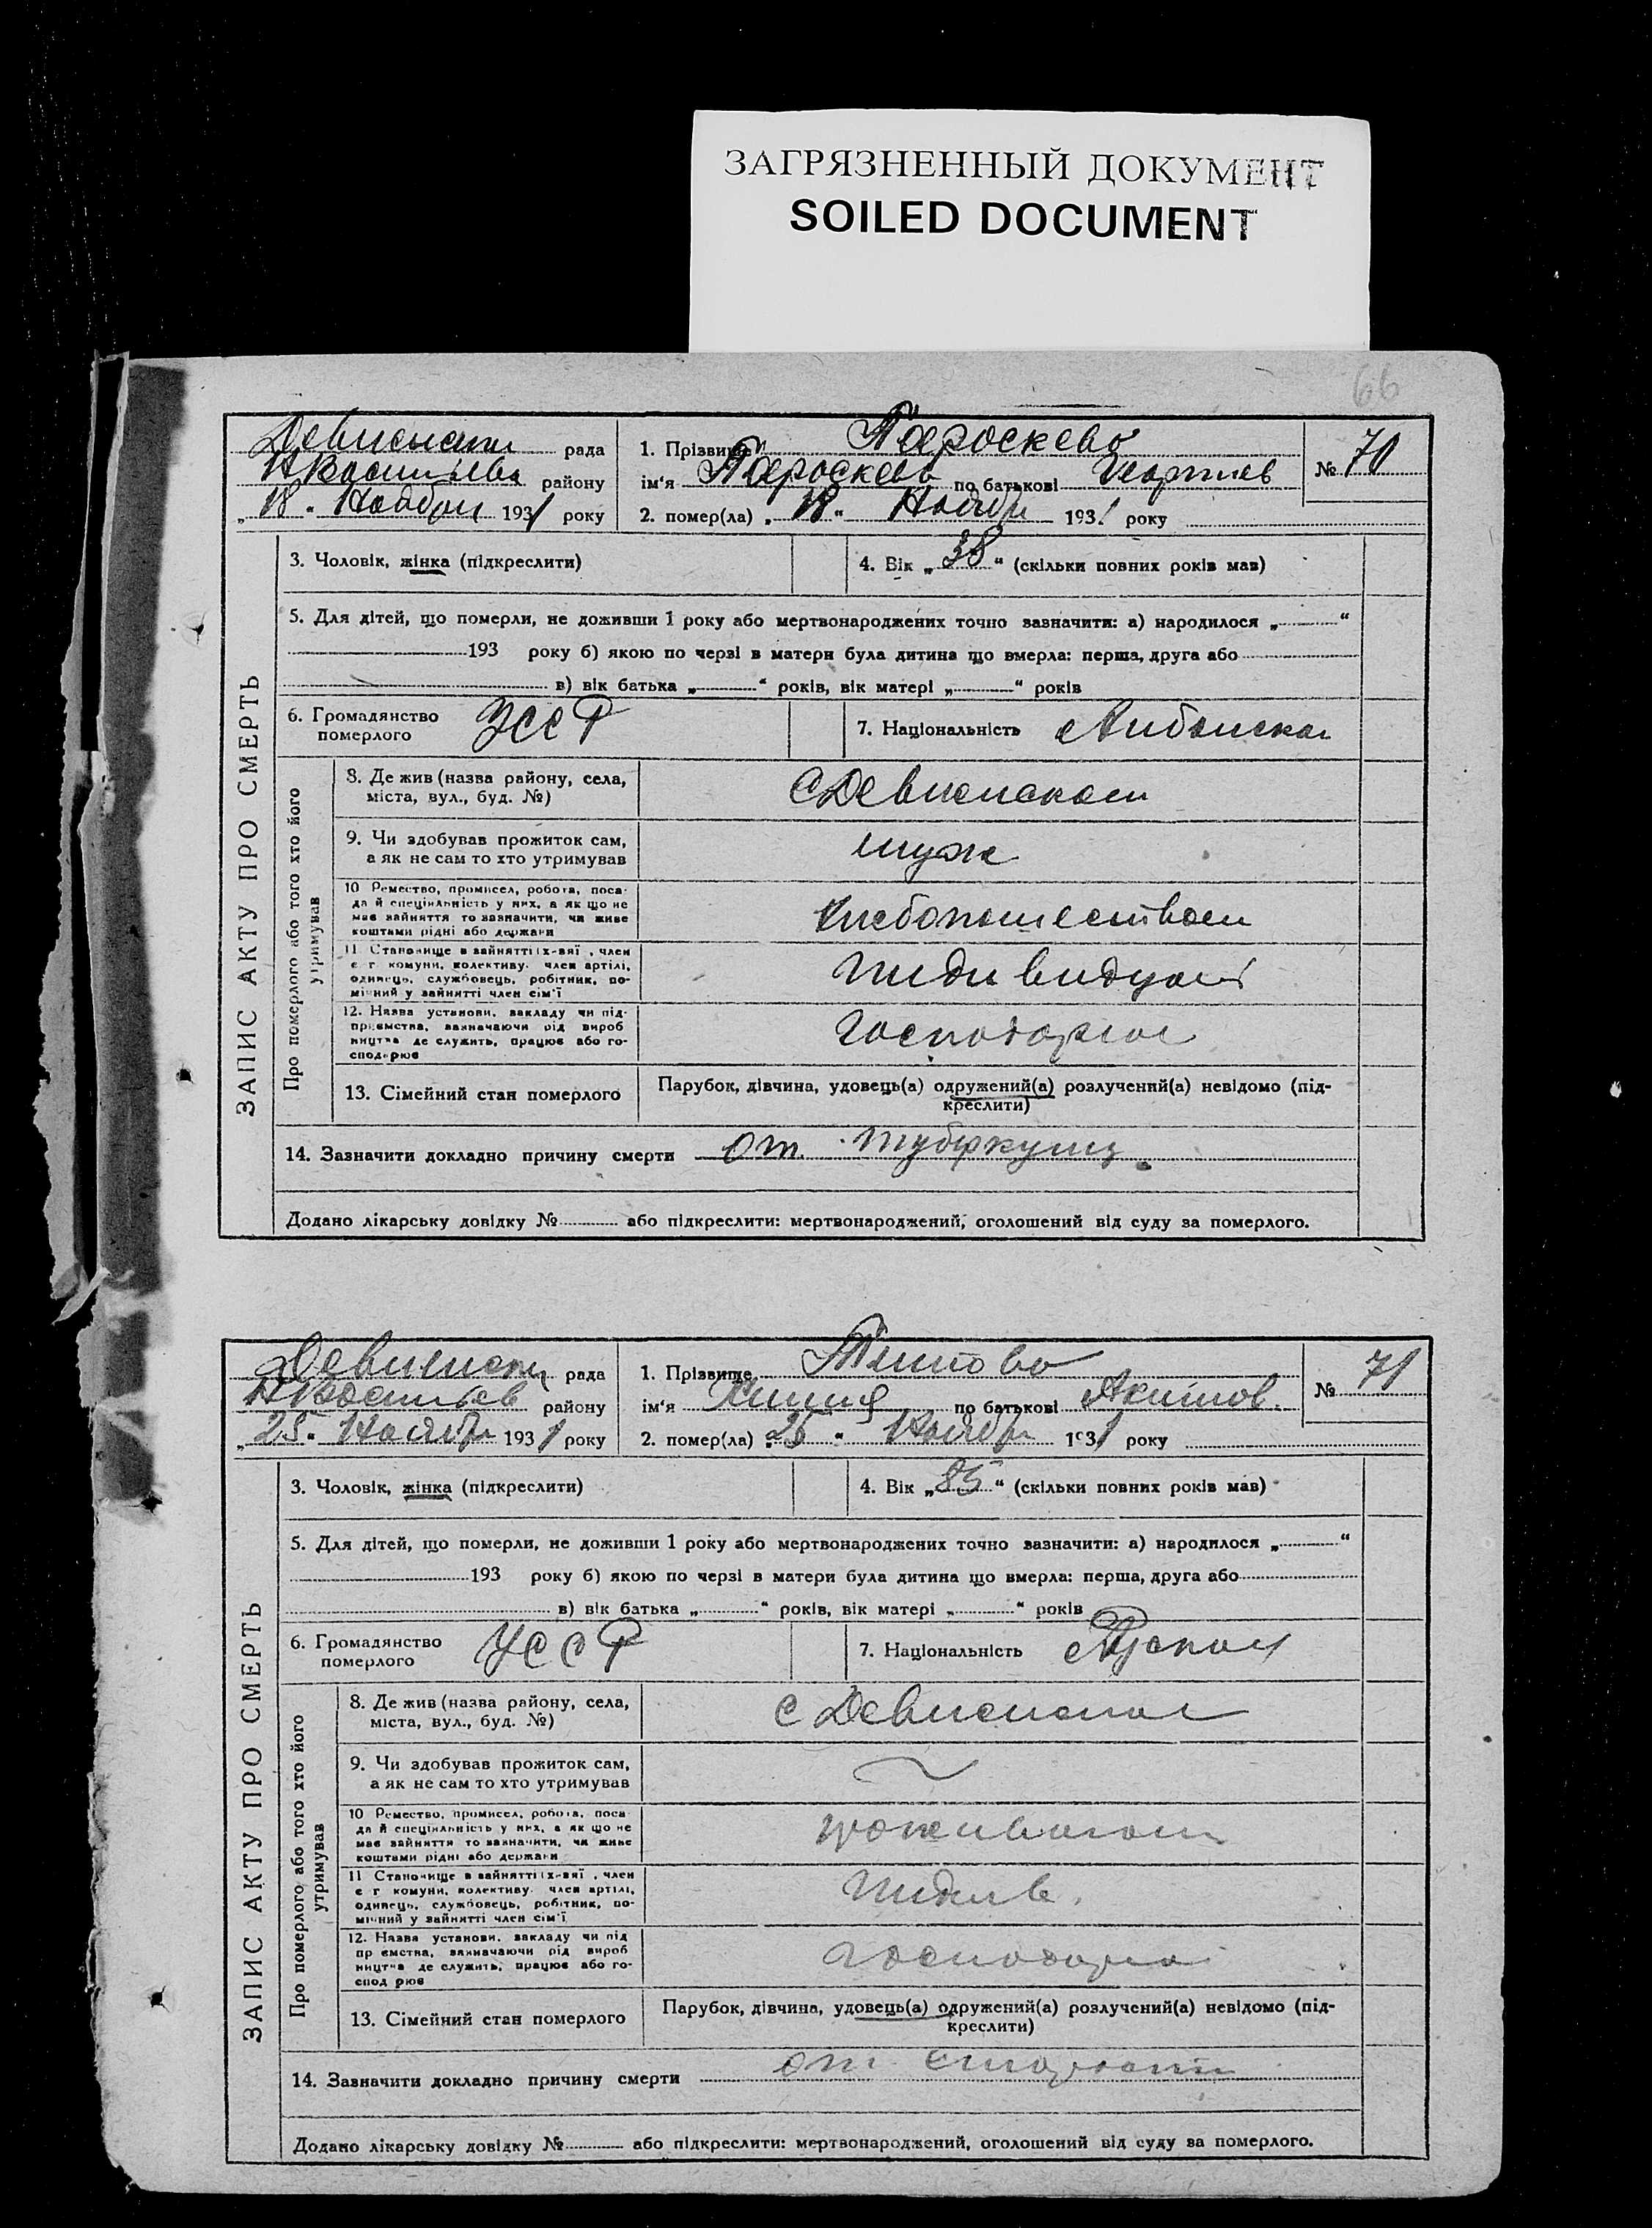 ЗАГРЯЗНЕННЫЙ ДОКУМЕНТ
SOILED DOCUMENT
66
рада
району
18 Ноября 1931 року
1. Прізвище Пароскева
ім'я Пароскева по батькові Георгиев
2. помер(ла) „18" Ноября 1931 року
№ 70
ЗАПИС АКТУ ПРО СМЕРТЬ
3. Чоловік, жінка (підкреслити)
4. Вік „38" (скільки повних років мав)
5. Для дітей, що померли, не доживши 1 року або мертвонароджених точно зазначити: а) народилося „ "
193 року б) якою по черзі в матери була дитина що вмерла: перша, друга або
в) вік батька „ " років, вік матері „ " років
6. Громадянство померлого УССР
7. Національність Албанска
Про померлого або того хто його утримував
8. Де жив (назва району, села,
міста, вул., буд. №)
9. Чи здобував прожиток сам,
а як не сам то хто утримував
муж
10 Ремество, промисел, робота, поса-
да й спеціяльність у них, а як що не
має зайняття то зазначити, чи живе
коштами рідні або держави
11 Становище в зайнятті їх-няї, член
с г комуни, колективу, член артілі,
одинець, службовець, робітник, по-
мічний у зайнятті член сім'ї
12. Назва установи, закладу чи під-
приємства, зазначаючи рід вироб
ництва де служить, працює або го-
сподарює
13. Сімейний стан померлого
Парубок, дівчина, удовець(а) одружений(а) розлучений(а) невідомо (під-
креслити)
14. Зазначити докладно причину смерти от туберкулез
Додано лікарську довідку № або підкреслити: мертвонароджений, оголошений від суду за померлого.
рада
району
25 Ноября 1931 року
1. Прізвище
ім'я по батькові Акимов.
2. помер(ла) 25 " Ноября 1931 року
№ 71
ЗАПИС АКТУ ПРО СМЕРТЬ
3. Чоловік, жінка (підкреслити)
4. Вік „85" (скільки повних років мав)
5. Для дітей, що померли, не доживши 1 року або мертвонароджених точно зазначити: а) народилося „ "
193 року б) якою по черзі в матери була дитина що вмерла: перша, друга або
в) вік батька „ " років, вік матері „ " років
6. Громадянство померлого УССР
7. Національність
Про померлого або того хто його утримував
8. Де жив (назва району, села,
міста, вул., буд. №)
9. Чи здобував прожиток сам,
а як не сам то хто утримував
10 Ремество, промисел, робота, поса-
да й спеціяльність у них, а як що не
має зайняття то зазначити, чи живе
коштами рідні або держави
11 Становище в зайнятті їх-няї, член
с г комуни, колективу, член артілі,
одинець, службовець, робітник, по-
мічний у зайнятті член сім'ї
Индив.
12. Назва установи, закладу чи під
пр ємства, зазначаючи рід вироб
ництва де служить, працює або го-
спод рює
13. Сімейний стан померлого
Парубок, дівчина, удовець(а) одружений(а) розлучений(а) невідомо (під-
креслити)
14. Зазначити докладно причину смерти от старости
Додано лікарську довідку № або підкреслити: мертвонароджений, оголошений від суду за померлого.